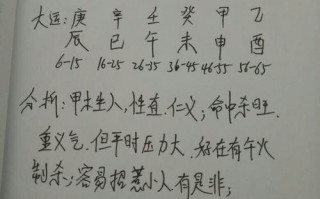 大运：庚 辛 壬 癸 甲 乙
辰 巳 午 未 申 酉
6-15 16-25 26-35 36-45 46-55 56-65
分析：甲木生人，性直，仁义；命中杀旺，
重义气，但平时压力大，好在有午火
制杀；容易招惹小人有是非；